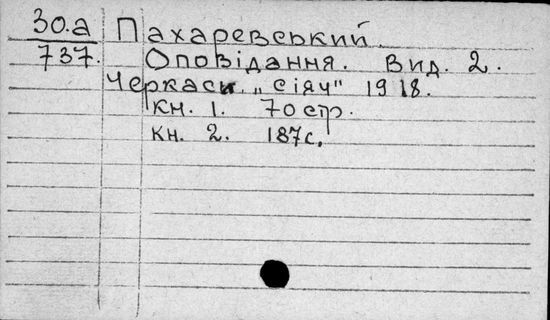 30.а Пахаревський.
737. Оповідання. Вид. 2.
Черкаси. „Сіяч" 1918.
Кн. 1. 70 стр.
Кн. 2. 187 с.